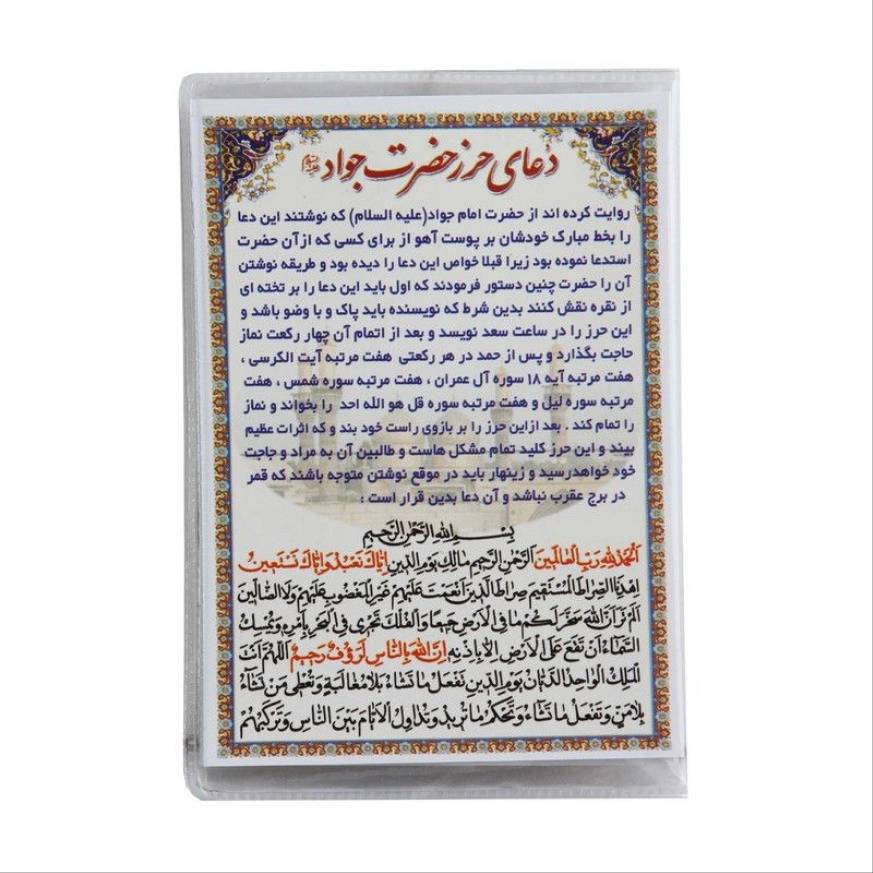 دعای حرز حضرت جواد
روایت کرده اند از حضرت امام جواد(علیه السلام) که نوشتند این دعا
را بخط مبارک خودشان بر پوست آهو از برای کسی که ازآن حضرت
استدعا نموده بود زیرا قبلا خواص این دعا را دیده بود و طریقه نوشتن
آن را حضرت چنین دستور فرمودند که اول باید این دعا را بر تخته ای
از نقره نقش کنند بدین شرط که نویسنده باید پاک و با وضو باشد و
این حرز را در ساعت سعد نویسد و بعد از اتمام آن چهار رکعت نماز
حاجت بگذارد و پس از حمد در هر رکعتی هفت مرتبه آیت الکرسی ،
هفت مرتبه آیه ۱۸ سوره آل عمران ، هفت مرتبه سوره شمس ، هفت
مرتبه سوره لیل و هفت مرتبه سوره قل هو الله احد را بخواند و نماز
را تمام کند . بعد ازاین حرز را بر بازوی راست خود بند و که اثرات عظیم
بیند و این حرز کلید تمام مشکل هاست و طالبین آن به مراد و حاجت
خود خواهدرسید و زینهار باید در موقع نوشتن متوجه باشند که قمر
در برج عقرب نباشد و آن دعا بدین قرار است :
بِسْمِ اللهِ الرَّحْمٰنِ الرَّحِيمِ
اَلْحَمْدُ لِلّٰهِ رَبِّ الْعَالَمِينَ الرَّحْمٰنِ الرَّحِيمِ مَالِكِ يَوْمِ الدِّينِ اِيَّاكَ نَعْبُدُ وَاِيَّاكَ نَسْتَعِينُ
اِهْدِنَا الصِّرَاطَ الْمُسْتَقِيمَ صِرَاطَ الَّذِينَ اَنْعَمْتَ عَلَيْهِمْ غَيْرِ الْمَغْضُوبِ عَلَيْهِمْ وَلَا الضَّالِّينَ
اَلَمْ تَرَ اَنَّ اللهَ سَخَّرَ لَكُمْ مَا فِي الْاَرْضِ جَمِيعًا وَالْفُلْكَ تَجْرِي فِي الْبَحْرِ بِاَمْرِهِ وَيُمْسِكُ
السَّمَاءَ اَنْ تَقَعَ عَلَى الْاَرْضِ اِلَّا بِاِذْنِهِ اِنَّ اللهَ بِالنَّاسِ لَرَؤُفٌ رَحِيمٌ اَللّٰهُمَّ اَنْتَ
الْمَلِكُ الْوَاحِدُ الدَّيَّانُ يَوْمَ الدِّينِ تَفْعَلُ مَا تَشَاءُ بِلَا مُغَالَبَةٍ وَتُعْطِي مَنْ تَشَاءُ
بِلَا مَنٍّ وَتَفْعَلُ مَا تَشَاءُ وَتَحْكُمُ مَا تُرِيدُ وَتُدَاوِلُ الْاَيَّامَ بَيْنَ النَّاسِ وَتُرَكِّبُهُمْ